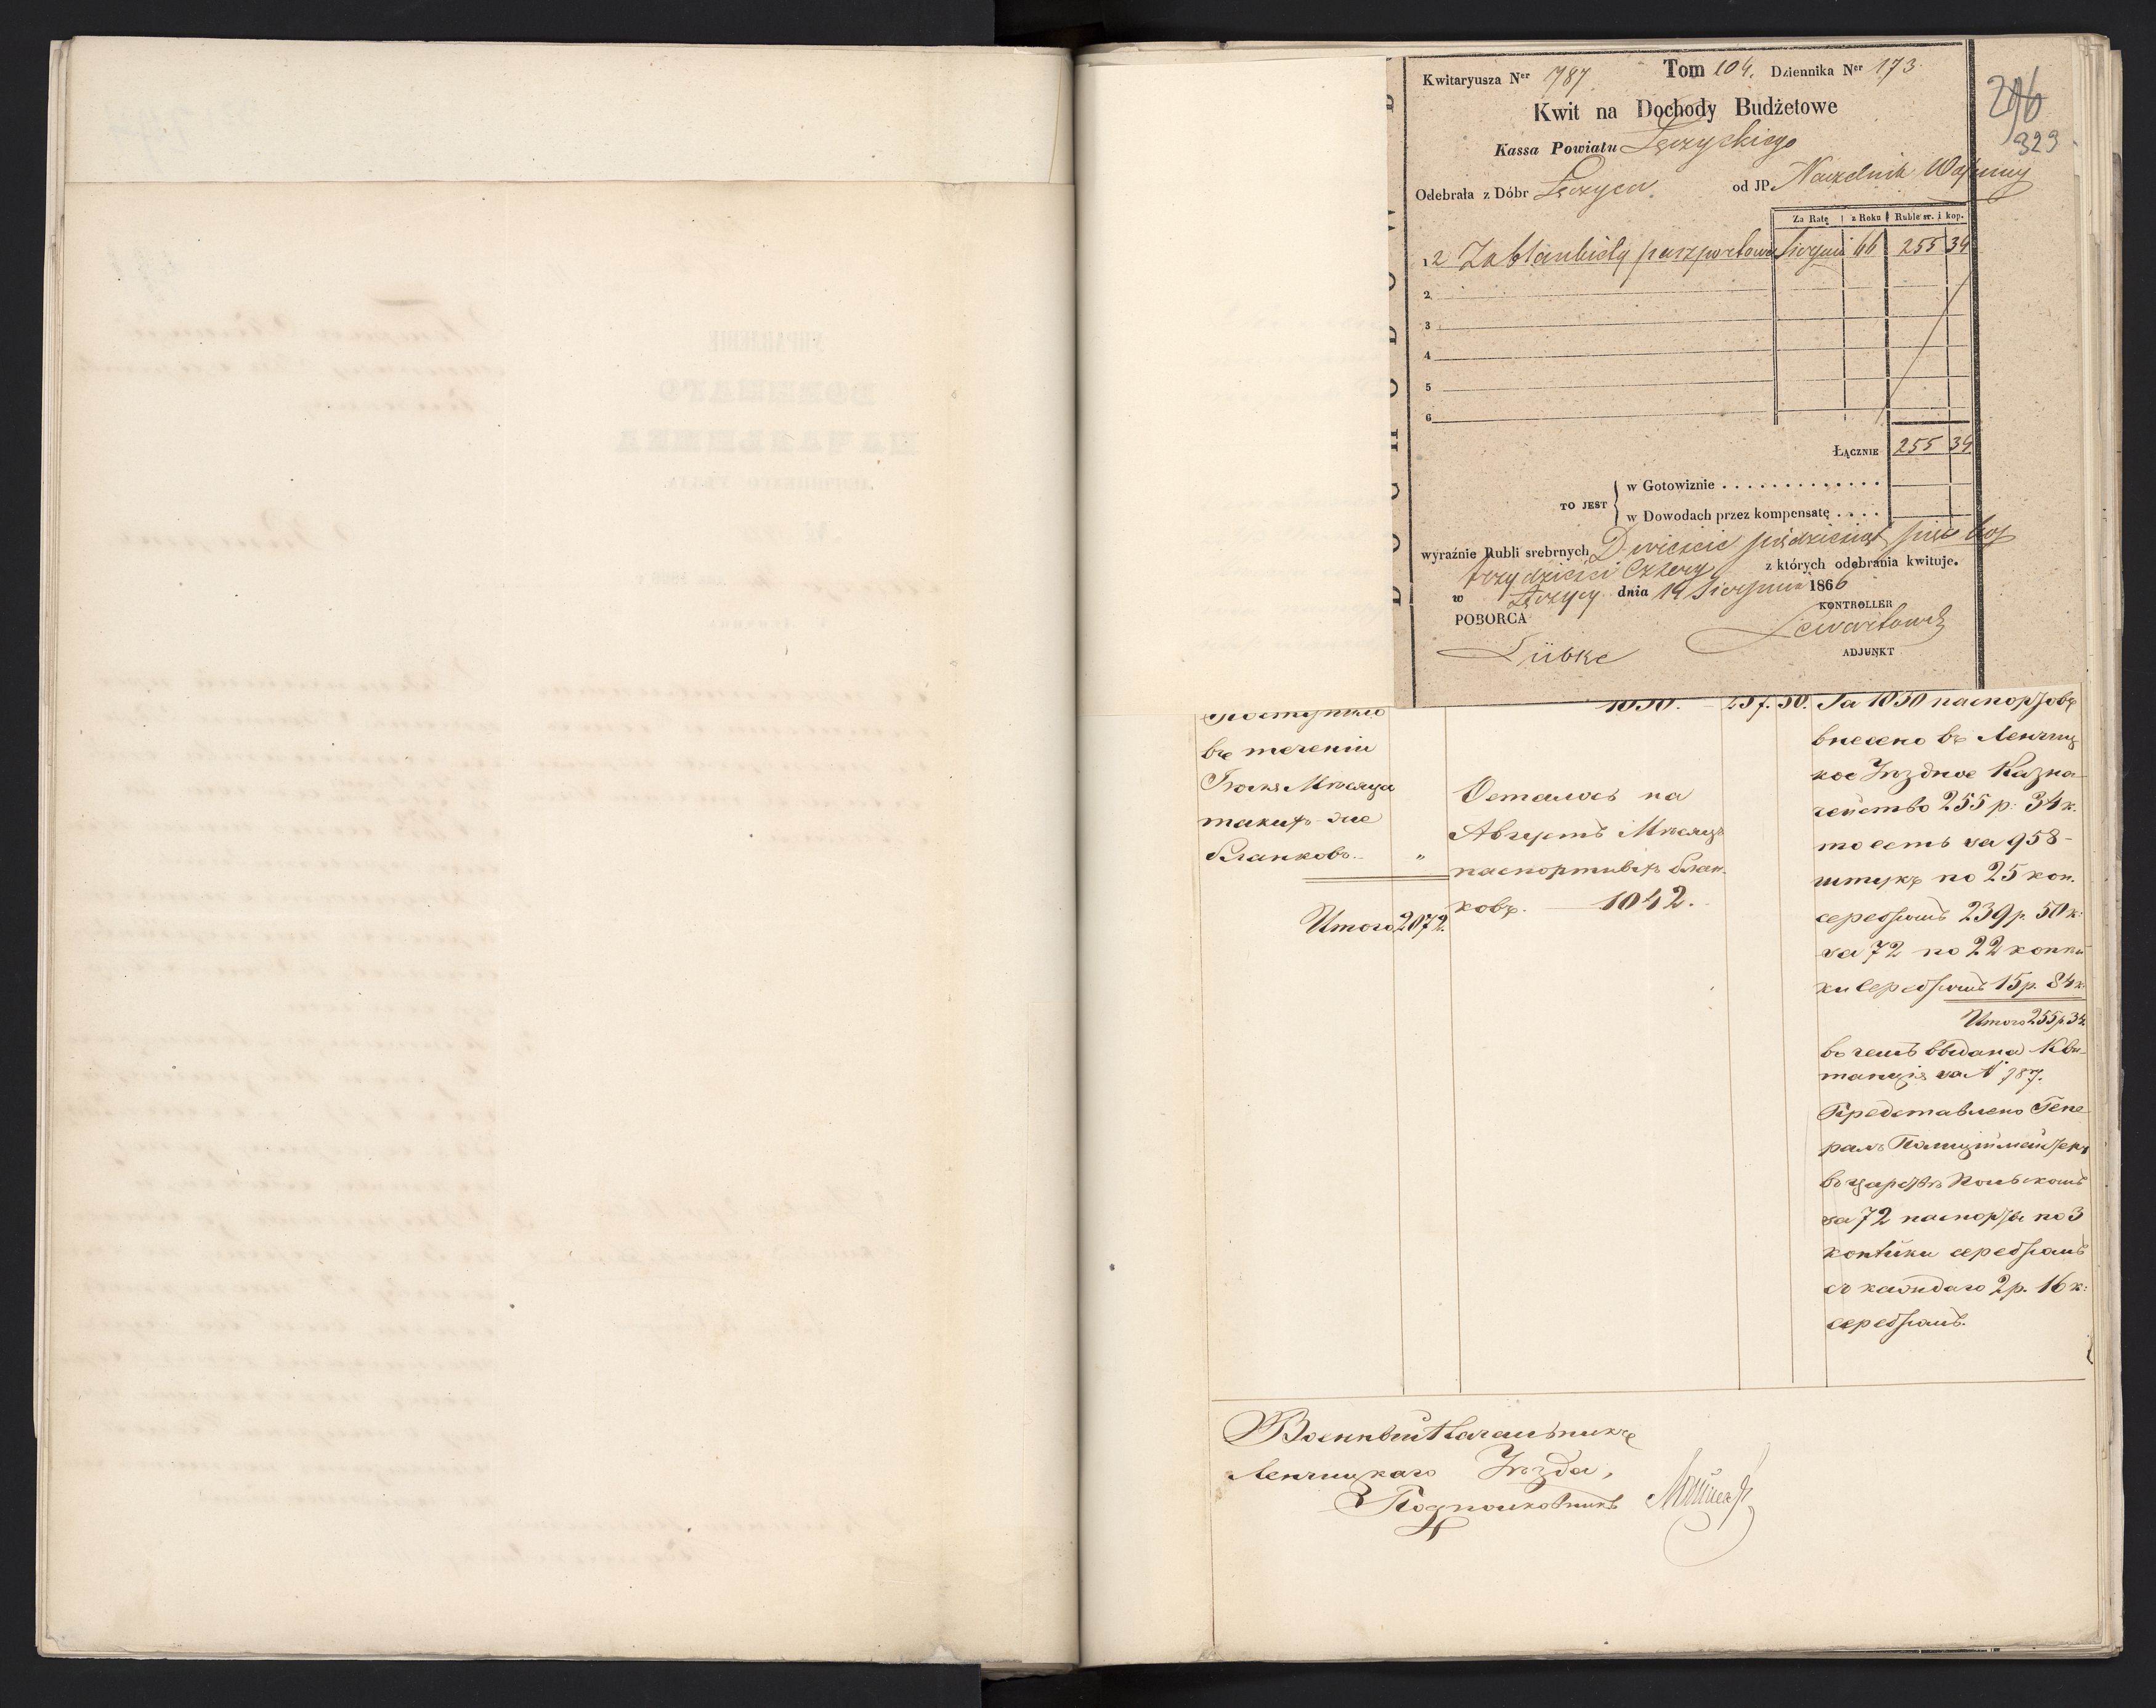 Kwitaryusza Ner 787 Tom 104. Dziennika Ner 173.
Kwit na Dochody Budżetowe
Kassa Powiatu Łęczyckiego
Odebrała z Dóbr Łęczyca od JP. Naczelnik Wojenny
Za Ratę z Roku Ruble sr. i kop.
1 2 Za blankiety paszportowe Sierpni 66 255 34
2
3
4
5
6
Łącznie 255 34
TO JEST
w Gotowiznie
w Dowodach przez kompensatę
wyraźnie Rubli srebrnych Dwieście pięćdziesiąt pięć kop
trzydzieści cztery z których odebrania kwituje.
w Łęczycy dnia 19 Sierpnia 1866
POBORCA KONTROLLER
Lübke Lewartowski
ADJUNKT
296
323
Поступило
въ теченіи
Іюля Мѣсяца
такихъ-же
бланковъ. „
Итого 2072.
1030.
Осталось на
Августъ Мѣсяцъ
паспортныхъ блан-
ковъ. 1042.
257. 50.
За 1030 паспортовъ
внесено въ Ленчиц-
кое Уѣздное Казна-
чейство 255 р. 34 к.
то есть за 958-
штукъ по 25 коп.
серебромъ 239 р. 50 к.
за 72 по 22 копѣй-
ки серебромъ 15 р. 84 к.
Итого 255 р. 34
въ чемъ выдана Кви-
танція за № 787.
Представлено Гене-
ралъ Полицiймейстеру
въ Царствѣ Польскомъ
за 72 паспорта по 3
копѣйки серебромъ
съ каждаго 2 р. 16 к.
серебромъ.
Военный Начальникъ
Ленчицкаго Уѣзда,
Подполковникъ